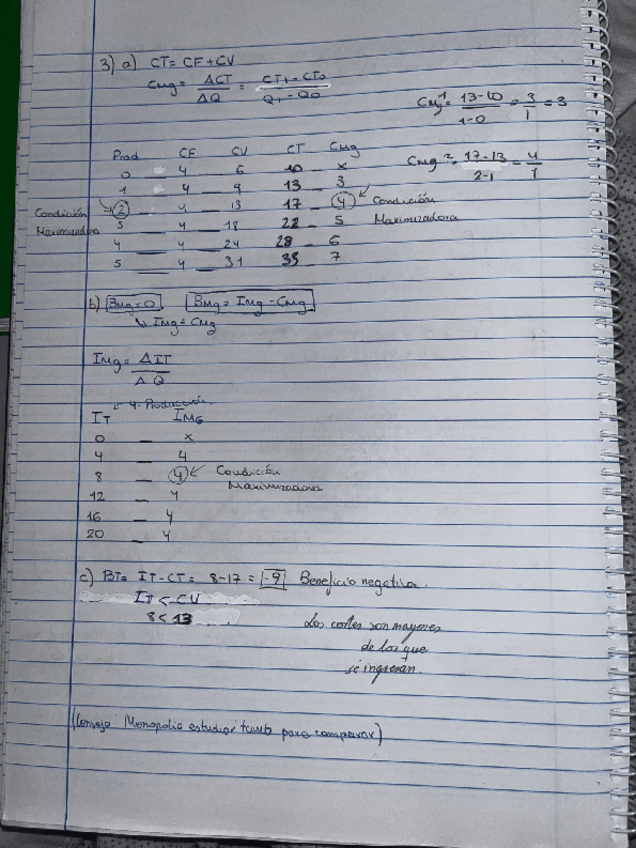 3) a) CT = CF + CV
CMg = ΔCT / ΔQ = CT1 - CT0 / Q1 - Q0
CMg1 = 13-10 / 1-0 = 3 / 1 = 3
CMg2 = 17-13 / 2-1 = 4 / 1
Prod CF CV CT CMg
0 4 6 10 x
1 4 9 13 3
Condición Maximizadora → 2 4 13 17 4 ← Condición Maximizadora
3 4 18 22 5
4 4 24 28 6
5 4 31 35 7
b) BMg = 0 BMg = IMg - CMg
↳ IMg = CMg
IMg = ΔIT / ΔQ
← 4. Producción.
IT IMg
0 x
4 4
8 4 ← Condición Maximizadora
12 4
16 4
20 4
c) BT = IT - CT = 8 - 17 = -9 Beneficio negativo.
IT < CV
8 < 13
Los costes son mayores
de los que
se ingresan.
(Consejo: Monopolio estudiar para comparar)